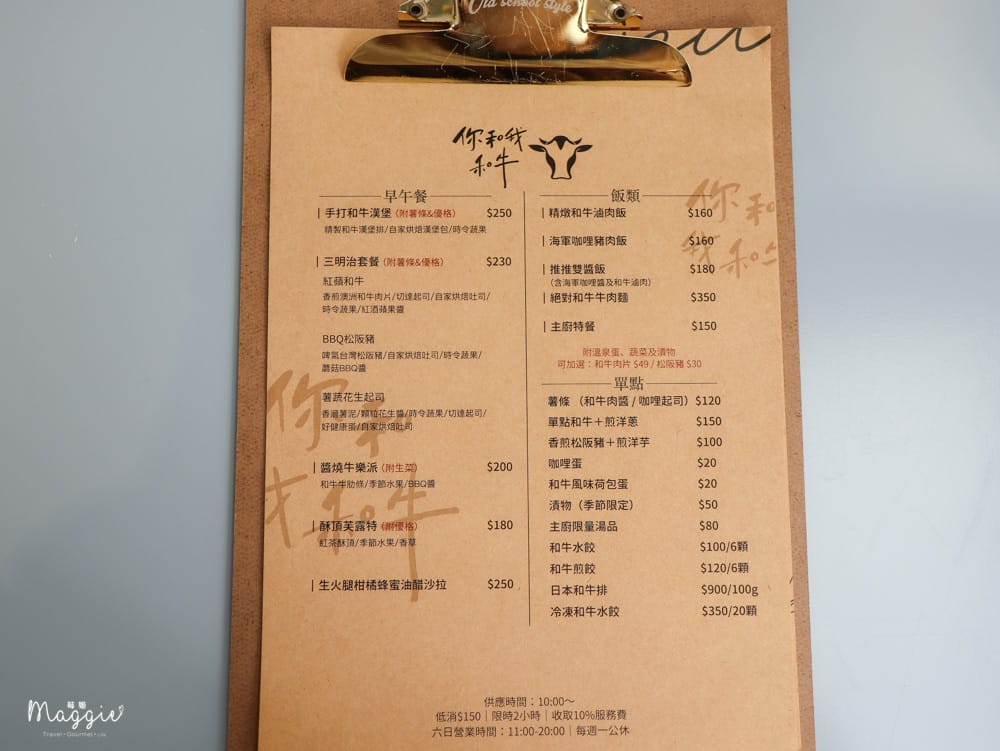 Old school style
你和我
和牛
早午餐
手打和牛漢堡 (附薯條&優格) $250
精製和牛漢堡排/自家烘焙漢堡包/時令蔬果
三明治套餐 (附薯條&優格) $230
紅蘋和牛
香煎澳洲和牛肉片/切達起司/自家烘焙吐司/
時令蔬果/紅酒蘋果醬
BBQ松阪豬
啤氣台灣松阪豬/自家烘焙吐司/時令蔬果/
蘑菇BBQ醬
薯蔬花生起司
香濃薯泥/顆粒花生醬/時令蔬果/切達起司/
好健康蛋/自家烘焙吐司
醬燒牛樂派 (附生菜) $200
和牛牛肋條/季節水果/BBQ醬
酥頂芙露特 (附優格) $180
紅茶酥頂/季節水果/香草
生火腿柑橘蜂蜜油醋沙拉 $250
飯類
精燉和牛滷肉飯 $160
海軍咖哩豬肉飯 $160
推推雙醬飯 $180
(含海軍咖哩醬及和牛滷肉)
絕對和牛牛肉麵 $350
主廚特餐 $150
附溫泉蛋、蔬菜及漬物
可加選：和牛肉片 $49 / 松阪豬 $30
單點
薯條 （和牛肉醬 / 咖哩起司） $120
單點和牛＋煎洋蔥 $150
香煎松阪豬＋煎洋芋 $100
咖哩蛋 $20
和牛風味荷包蛋 $20
漬物（季節限定） $50
主廚限量湯品 $80
和牛水餃 $100/6顆
和牛煎餃 $120/6顆
日本和牛排 $900/100g
冷凍和牛水餃 $350/20顆
你和
我和牛
你和
我和牛
供應時間：10:00～
低消$150｜限時2小時｜收取10%服務費
六日營業時間：11:00-20:00｜每週一公休
Maggie
Travel•Gourmet•Life